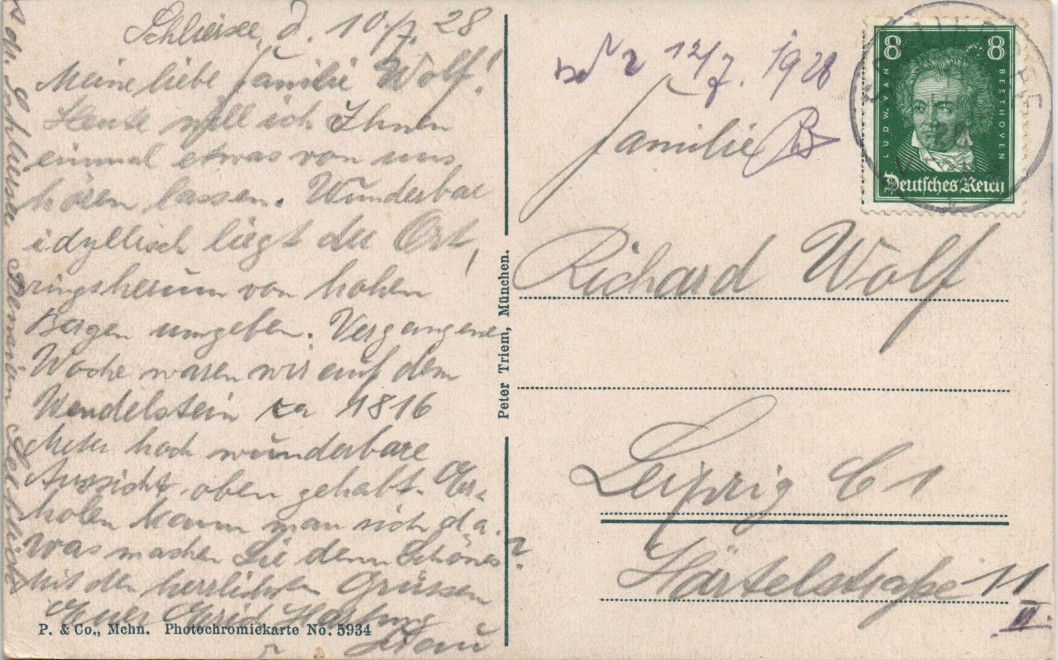 Schliersee, d. 10./7. 28
Meine liebe Familie Wolf!
Heute will ich Ihnen
einmal etwas von uns
hören lassen. Wunderbar
idyllisch liegt der Ort,
ringsherum von hohen
Bergen umgeben. Vergangene
Woche waren wir auf dem
Wendelstein ca 1816
Meter hoch wunderbare
Aussicht oben gehabt. Er-
holen kann man sich da.
Was machen Sie denn Schönes?
Mit den herrlichsten Grüssen
Euer Erich
Frau
P. & Co., Mchn. Photochromiekarte No. 5934
Peter Triem, München.
12/7. 1928
Familie
Richard Wolf
Leipzig C 1
Härtelstraße 11
II.
8 8
LUDW. VAN BEETHOVEN
Deutsches Reich